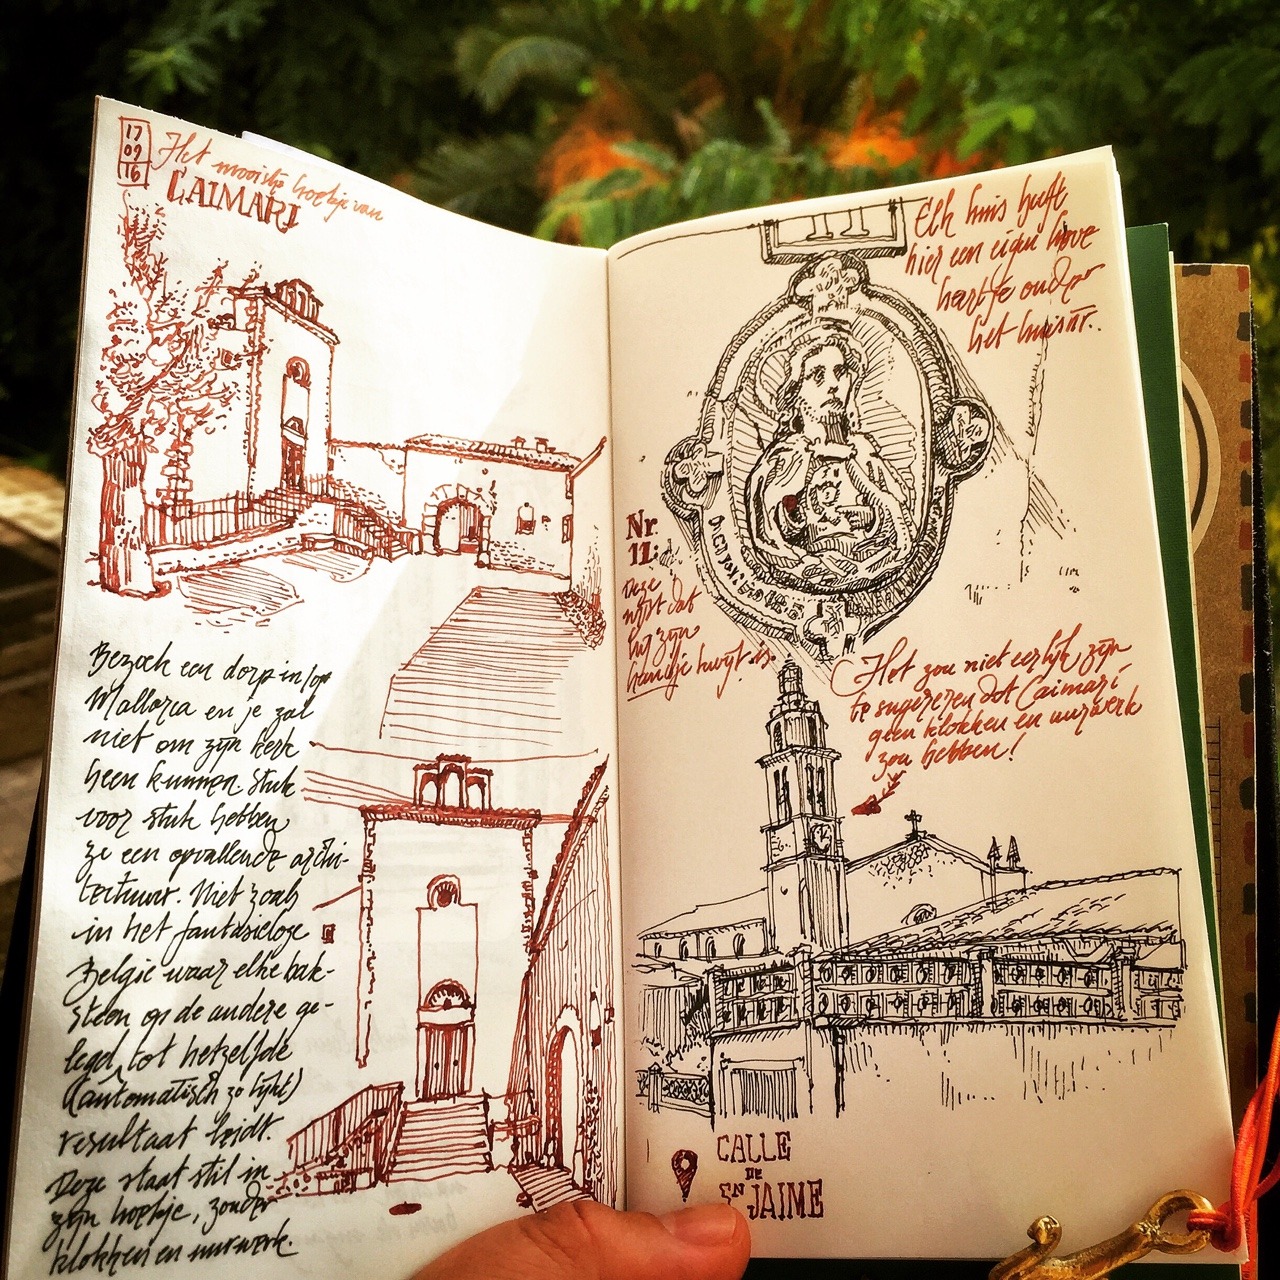 17
09
16
Het mooiste hoekje van
CAIMARI
Bezoek een dorp in/op
Mallorca en je zal
niet om zijn kerk
heen kunnen. Stuk
voor stuk hebben
ze een opvallende archi-
tectuur. Niet zoals
in het fantasieloze
België waar elke bak-
steen op de andere ge-
legd, tot hetzelfde
(automatisch zo lijkt)
resultaat leidt.
Deze staat stil in
zijn hoekje, zonder
klokken en uurwerk.
Elk huis heeft
hier een eigen
hartje onder
het huisnr..
Nr.
11:
Deze
wijst dat
hij zijn
handje kwijt is.
Het zou niet eerlijk zijn
te sugereren dat Caimari
geen klokken en uurwerk
zou hebben!
CALLE
DE
SN JAIME